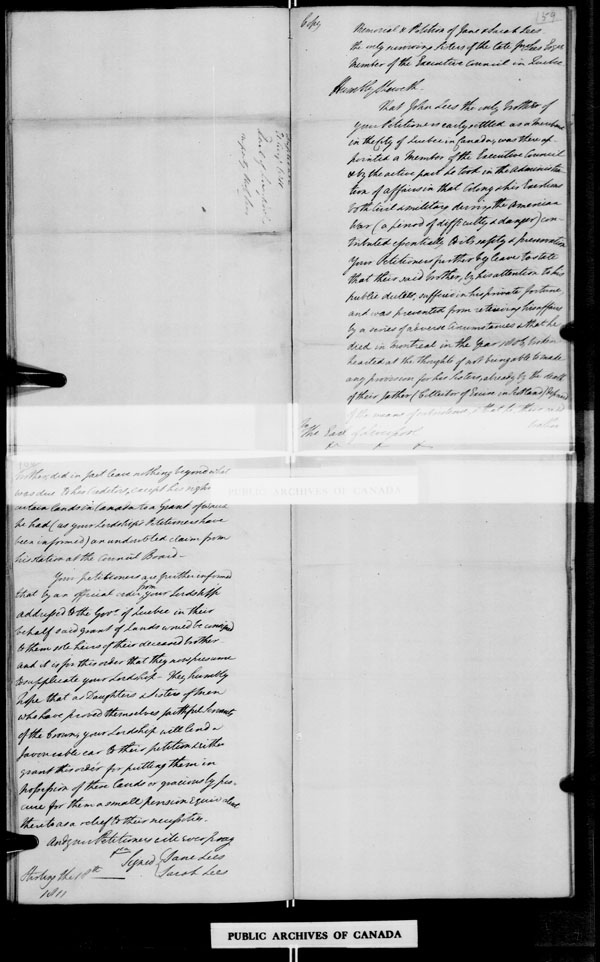 159
Copy
Memorial & Petition of Jane & Sarah Lees
the only surviving Sisters of the late Jno Lees Esqr
Member of the Executive Council in Quebec
Humbly Sheweth
That John Lees the only brother of
your Petitioners early settled as a merchant
in the City of Quebec in Canada, was there ap-
pointed a Member of the Executive Council
& by the active part he took in the administra-
tion of affairs in that Colony & his Exertions
both Civil & military during the American
War (a period of difficulty & danger) con-
tributed essentially to its safety & preservation
Your Petitioners further beg leave to state
that their said brother, by his attention to his
public duties, suffered in his private fortune,
and was prevented from retrieving his affairs
by a series of adverse circumstances & that he
died in Montreal in the Year broken
hearted at the thoughts of not being able to make
any provision for his Sisters, already by the death
of their father (Collector of Excise in Scotland) deprived
of the means of subsistence, & that their said
brother
To
The Earl of Liverpool
brother, did in fact leave nothing beyond what
was due to his Creditors, except his right
certain Lands in Canada to a Grant of which
he had (as your Lordship's Petitioners have
been informed) an undoubted claim from
his station at the Council Board—
Your petitioners are further informed
that by an official order from your Lordship
addressed to the Govr. of Quebec in their
behalf said grant of Lands would be
to them sole heirs of their deceased brother
and it is for this order that they now presume
to supplicate your Lordship— They humbly
hope that as Daughters & Sisters of men
who have proved themselves faithful Servants
of the Crown, your Lordship will lend a
favourable ear to their petition & either
grant this order for putting them in
possession of these lands or graciously pro-
cure for them a small pension equivalent
thereto as a relief to their necessities.
And your Petitioners will ever pray
Signed { Jane Lees
Sarah Lees
Stirling the
1811
PUBLIC ARCHIVES OF CANADA
PUBLIC ARCHIVES OF CANADA